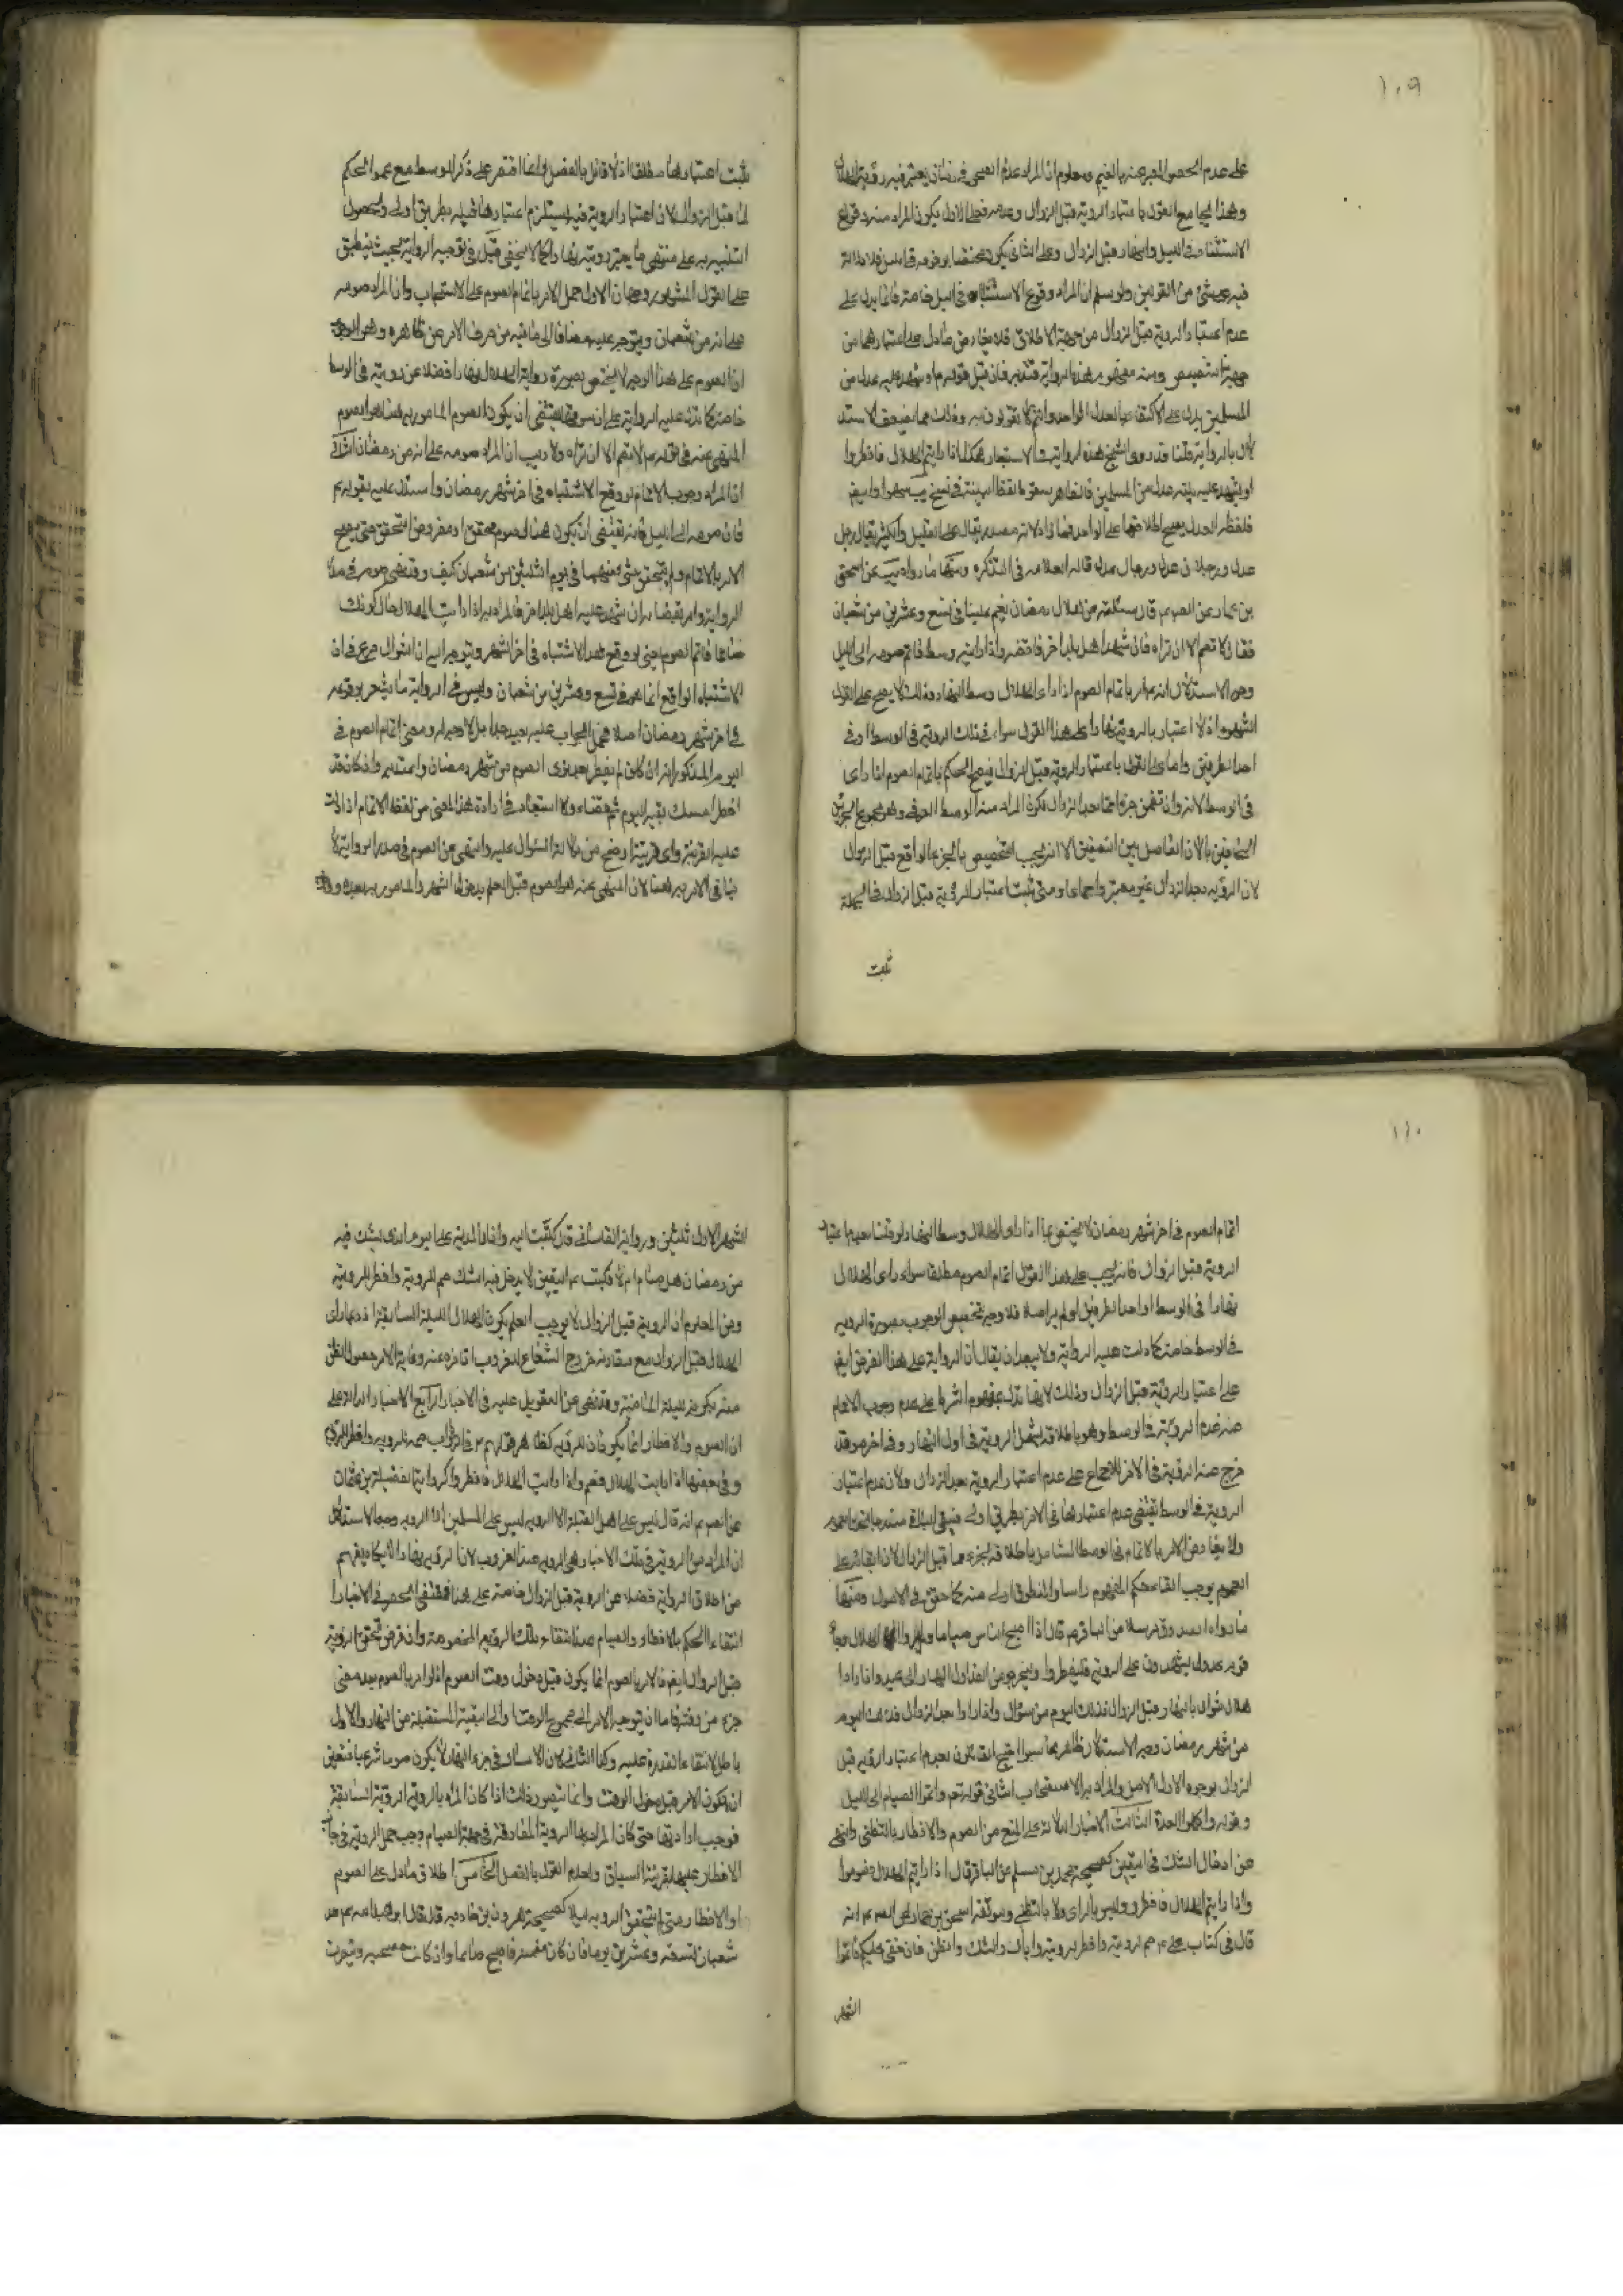 ١٠٩
على عدم الحصول المعبر عنه بالغيم ومعلوم ان المراد عدم الصحو في زمان يعتبر فيه رؤية الهلال
وهذا يجامع القول باعتبار الرؤية قبل الزوال وعدمه فعلى الاول يكون المراد منه وقوع
الاشتباه في الليل والنهار قبل الزوال وعلى الثاني يكون مختصا بوقوعه في الليل فلا دلالة
فيه على شئ من القولين ولو سلم ان المراد وقوع الاشتباه في الليل خاصة فانما يدل على
عدم اعتبار الرؤية قبل الزوال من جهة الاطلاق فلا يعارض ما دل على اعتبارها من
جهة التنصيص ومنه مفهوم هذه الرواية فتدبر فان قيل قوله او شهد عليه عدل من
المسلمين يدل على الاكتفاء بالعدل الواحد وانتم لا تقولون به وذلك مما يضعف الاستد
لال بالرواية قلنا قد روى الشيخ هذه الرواية في الاستبصار هكذا اذا رايتم الهلال فافطروا
او يشهد عليه بينة عدل من المسلمين فالظاهر سقوط لفظ البينة في نسخ يب سهوا وايض
فلفظ العدل يصح اطلاقها على الواحد فما زاد لانه مصدر يقال على القليل والكثير يقال رجل
عدل ورجلان عدل ورجال عدل قاله العلامه في التذكره ومنها ما رواه يب عن اسحق
بن عمار عن الصم قال سئلته من هلال رمضان يغم علينا في تسع وعشرين من شعبان
فقال لا تصم الا ان تراه فان شهد اهل بلد اخر فاقضه واذا رايته وسط فاتم صومه الى الليل
وجه الاستدلال انه امر باتمام الصوم اذا راى الهلال وسط النهار وذلك لا يصح على القول
المشهور اذ لا اعتبار بالرؤية نهارا على هذا القول سواء في ذلك الرؤية في الوسط او في
احد الطرفين واما على القول باعتبار الرؤية قبل الزوال فيصح الحكم باتمام الصوم اذا راى
في الوسط لانه وان تضمن جزءا مما بعد الزوال لكون المراد منه الوسط العرفي وهو مجموع الجزئين
لان الرؤية بعد الزوال غير معتبر اجماعا ومتى ثبت اعتبار الرؤية قبل الزوال في الجملة
ثبت
ثبت اعتبارها مطلقا اذ لا قائل بالفصل وانما اقتصر على ذكر الوسط مع عموم الحكم
لما قبل الزوال لان اعتبار الرؤية فيه يستلزم اعتبارها قبله بطريق اولى ولحصول
التنبيه به على منتهى ما يعتبر رؤيته نهارا كما لا يخفى قيل في توجيه الرواية بحيث ينطبق
على القول المشهور وجهان الاول حمل الامر باتمام الصوم على الاستحباب وان المراد صومه
على انه من شعبان ويتوجه عليه مضافا الى ما فيه من صرف الامر عن ظاهره وهو الوجوب
ان الصوم على هذا الوجه لا يختص بصورة رواية الهلال نهارا فضلا عن رؤيته في الوسط
خاصة كما تدل عليه الرواية على ان سوقها يقتضي ان يكون الصوم المامور به هنا هو الصوم
المنهي عنه في قوله لا تصم الا ان تراه ولا ريب ان المراد صومه على انه من رمضان الثاني
ان المراد وجوب الاتمام لو وقع الاشتباه في اخر شهر رمضان واستدل عليه بقوله
فاتم صومه الى الليل فانه يقتضي ان يكون هناك صوم محقق او مفروض التحقق حتى يصح
الامر بالاتمام ولم يتحقق شئ منهما في يوم الثلثين من شعبان كيف وقد نهى صومه في صدر
الرواية وامر بقضائه ان شهد عليه اهل بلد اخر فالمراد به اذا رايت الهلال حال كونك
صائما فاتم الصوم يعني لو وقع هذا الاشتباه في اخر الشهر ويتوجه اليه ان السؤال صريح في ان
الاشتباه الواقع انما هو في تسع وعشرين من شعبان وليس في الرواية ما يشعر بوقوعه
في اخر شهر رمضان اصلا فحمل الجواب عليه بعيد جدا بل لا وجه له ومعنى اتمام الصوم في
اليوم المذكور انه ان كان لم يفطر بعد نوى الصوم من شهر رمضان واعتد به وان كان قد
افطر امسك بقية اليوم ثم قضاه ولا استبعاد في ارادة هذا المعنى من لفظ الاتمام اذا دلت
عليه القرينة واى قرينة اوضح من دلالة السؤال عليه والنهي عن الصوم في صدر الرواية لا
ينافي الامر به هنا لان المنهي عنه هو الصوم قبل العلم بدخول الشهر والمامور به بعده
١١٠
اتمام الصوم في اخر شهر رمضان لا يختص بما اذا راى الهلال وسط النهار
الرؤية قبل الزوال فانه يجب على هذا القول اتمام الصوم مطلقا سواء راى الهلال
نهارا في الوسط او احد الطرفين او لم يره اصلا فلا وجه لتخصيص الوجوب بصورة الرؤية
في الوسط خاصة كما دلت عليه الرواية ولا يبعد ان يقال ان الرواية على هذا الفرض ايض
على اعتبار الرؤية قبل الزوال وذلك لانها تدل بمفهوم الشرط على عدم وجوب الاتمام
عند عدم الرؤية في الوسط وهو باطلاقه يشمل الرؤية في اول النهار وفي اخره وقد
خرج عنه الرؤية في الاخر للاجماع على عدم اعتبار الرؤية بعد الزوال ولان عدم اعتبار
الرؤية في الوسط يقتضي عدم اعتبارها في الاخر بطريق اولى فيبقى الباقي مندرجا
ولا يعارض الامر بالاتمام في الوسط الشامل باطلاقه لجزء مما قبل الزوال لان ابقائه على
العموم يوجب الغاء حكم المفهوم راسا والمنطوق اولى منه كما حقق في الاصول ومنها
ما رواه الصدوق مرسلا عن الباقر قال اذا اصبح الناس صياما ولم يروا الهلال وجاء
قوم عدول يشهدون على الرؤية فليفطروا وليخرجوا من الغد اول النهار الى عيدهم واذا راوا
هلال شوال بالنهار قبل الزوال فذلك اليوم من شوال واذا راوا بعد الزوال فذلك اليوم
من شهر رمضان وجه الاستدلال ظاهر مما سبق احتج القائلون بعدم اعتبار الرؤية قبل
الزوال بوجوه الاول الاصل والمراد به الاستصحاب الثاني قوله تم واتموا الصيام الى الليل
وقوله ولتكملوا العدة الثالث الاخبار الدالة على المنع من الصوم والافطار بالتظني والنهي
عن ادخال الشك في اليقين كصحيحة محمد بن مسلم عن الباقر قال اذا رايتم الهلال فصوموا
واذا رايتم الهلال فافطروا وليس بالراى ولا بالتظني وموثقة اسحق بن عمار عن الصم انه
قال في كتاب على صم لرؤيته وافطر لرؤيته واياك والشك والظن فان خفى عليكم فاتموا
الشهر
الشهر الاول ثلثين ورواية القاساني قال كتبت اليه وانا بالمدينة على اليوم الذي يشك فيه
من رمضان هل يصام ام لا فكتب اليقين لا يدخل فيه الشك صم للرؤية وافطر للرؤية
ومن المعلوم ان الرؤية قبل الزوال لا يوجب العلم بكون الهلال لليلة السابقة
الهلال قبل الزوال مع مقارنة خروج الشعاع
منه بكونه لليلة الماضية وقد نهى عن التعويل عليه في الاخبار الرابع الاخبار الدالة على
ان الصوم والافطار انما يكونان للرؤية كقولهم صم للرؤية وافطر للرؤية
وفي بعضها اذا رايت الهلال فصم واذا رايت الهلال فافطر وكرواية الفضيل بن عثمان
عن الصم انه قال ليس على اهل القبلة الا الرؤية ليس على المسلمين الا الرؤية وجه الاستدلال
ان المراد من الرؤية في تلك الاخبار هي الرؤية عند الغروب لان الرؤية نهارا لا يكاد يفهم
من اطلاق الرواية فضلا عن الرؤية قبل الزوال خاصة على هذا فمقتضى الحصر في الاخبار
انتفاء الحكم بالافطار والصيام عند انتفاء تلك الرؤية المخصوصة وان فرض تحقق الرؤية
قبل الزوال ايض فالامر بالصوم انما يكون قبل دخول وقت الصوم اذ لو امر بالصوم بعد مضي
جزء من وقته فاما ان يتوجه الامر الى مجموع الوقت او الى البقية المستقبلة من النهار والاول
باطل لانتفاء القدرة عليه وكذا الثاني لان الامساك في جزء النهار لا يكون صوما شرعيا فتعين
ان يكون الامر قبل دخول الوقت وانما يتصور ذلك اذا كان المراد بالرؤية الرؤية السابقة
فوجب ارادتها متى كان المراد بها الرؤية المفارقة في جهة الصيام وجب حمل الرؤية في جانب
الافطار عليها بقرينة السياق ولعدم القول بالفصل الخامس اطلاق ما دل على الصوم
او الافطار متى لم يتحقق الرؤية ليلا كصحيحة هرون بن خارجة قال قال ابو عبد الله عم عد
شعبان تسعة وعشرين يوما فان كان متغيمة فاصبح صائما وان كانت مصحية وتبصرت